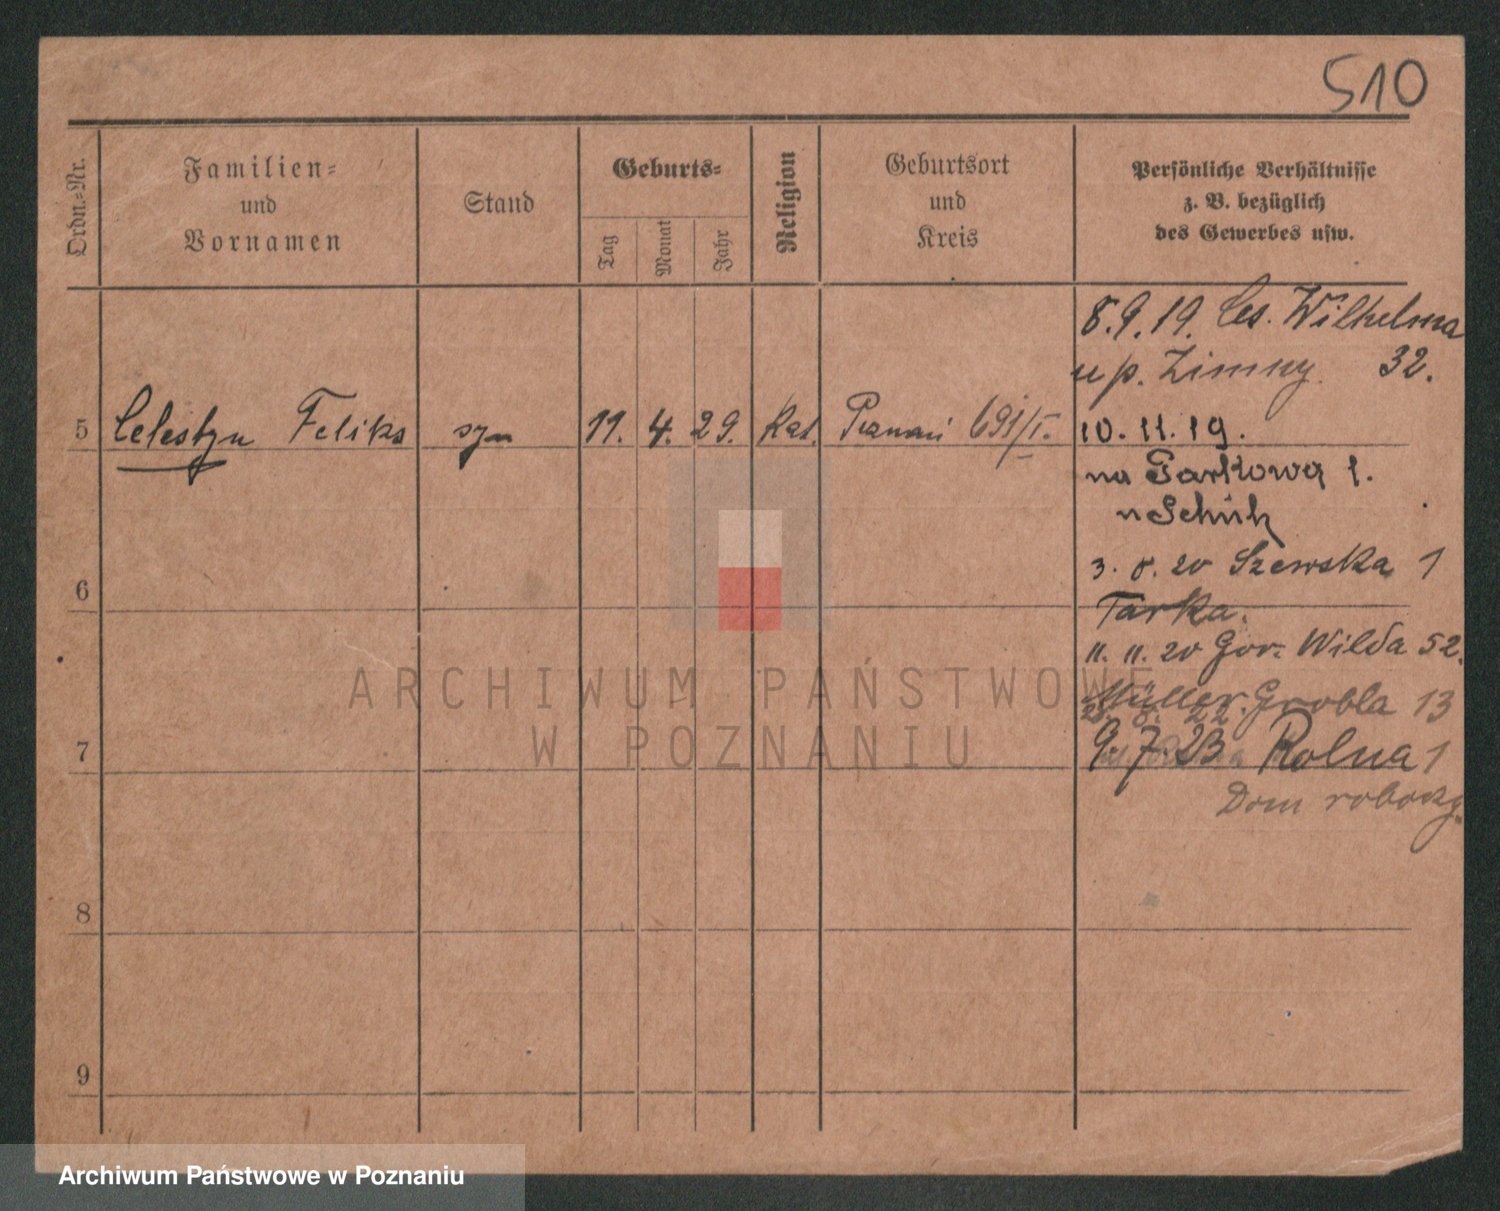 510
Ordn.-Nr.
Familien-
und
Vornamen
Stand
Geburts-
Tag
Monat
Jahr
Religion
Geburtsort
und
Kreis
Persönliche Verhältnisse
z. B. bezüglich
des Gewerbes usw.
8.9.19. Ces. Wilhelma
u p. Zimny 32.
5 Celestyn Feliks syn 11. 4. 29. kat. Poznań 691/I. 10.11.19.
na Parkowa 1.
u Schüh
3. 8. 20 Szewska 1
6 Tarka.
11. 11. 20 Gór. Wilda 52.
Müller. Grobla 13
22
7 9. 7. 23 Rolna 1
Dom roboczy.
8
9
ARCHIWUM PAŃSTWOWE
W POZNANIU
Archiwum Państwowe w Poznaniu